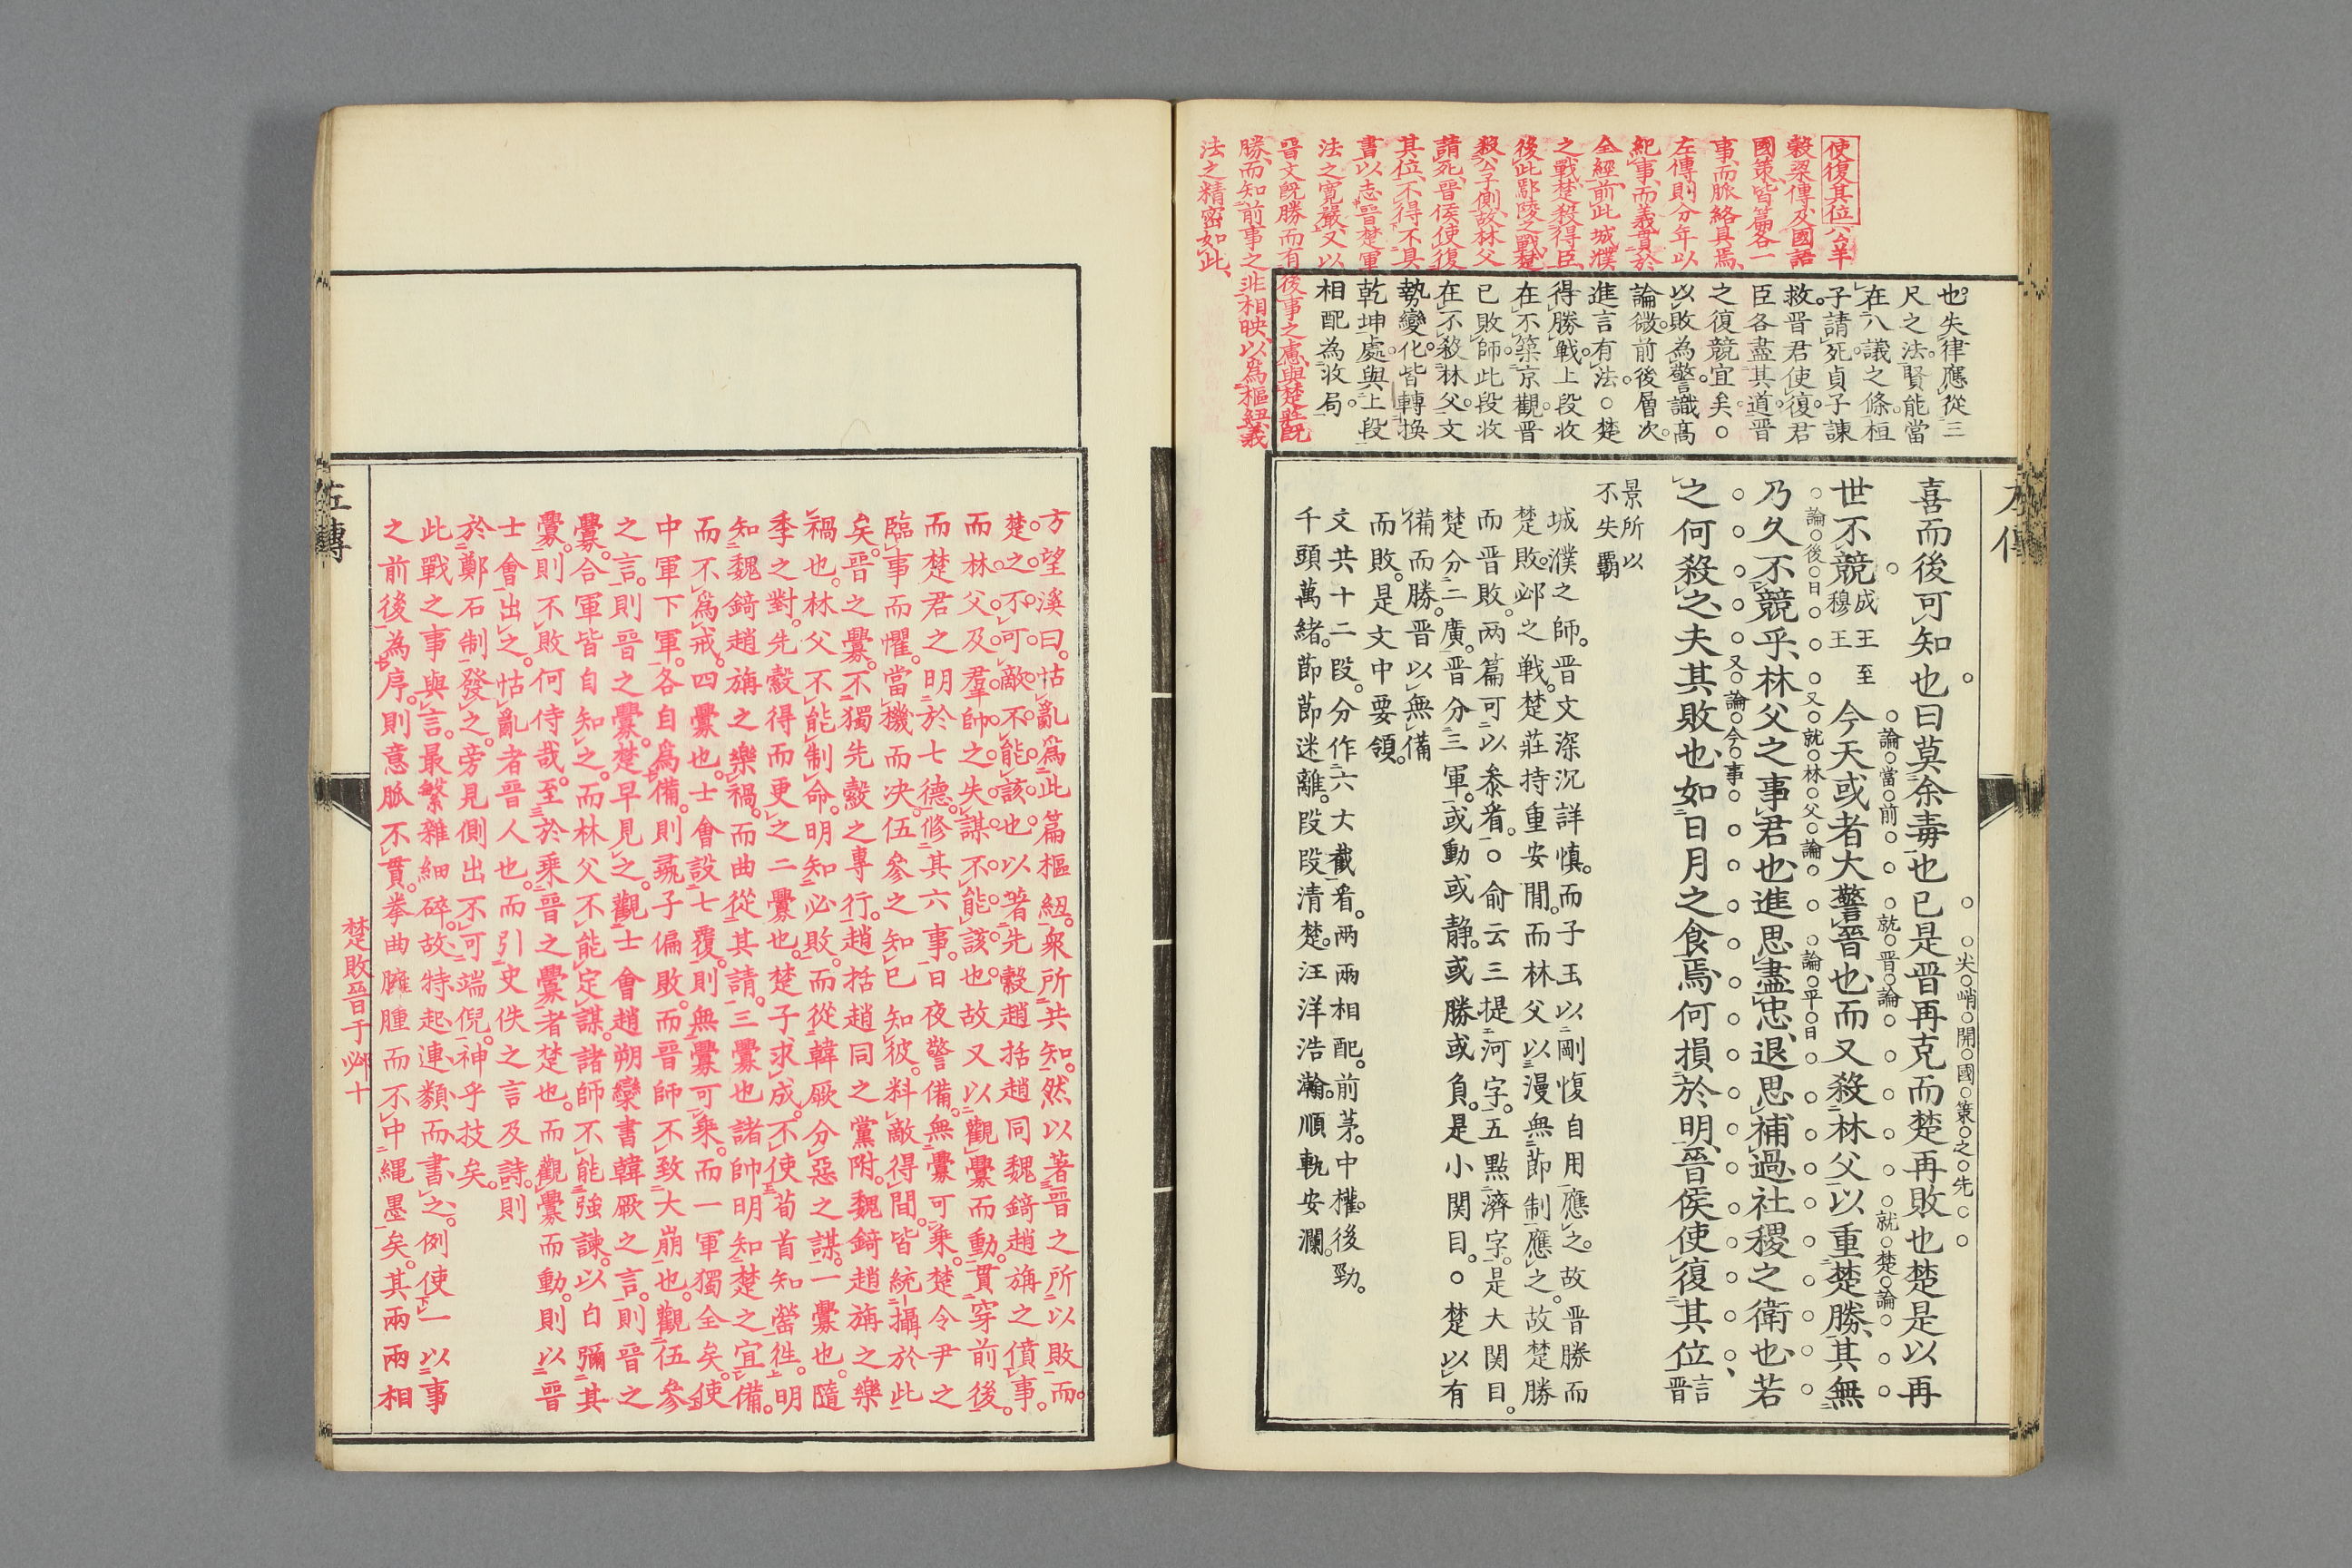 使復其位公羊
穀梁傳及國語
國策皆篇各一
事而脈絡具焉
左傳則分年以
紀事而義貫於
全經前此城濮
之戰楚殺得臣
後此鄢陵之戰楚
殺公子側故林父
請死晉侯使復
其位不得不具
書以志晉楚軍
法之寬嚴又以
晉文既勝而有後事之慮與楚莊既
勝而知前事之非相映以爲樞紐義
法之精密如此
也失律應從三
尺之法賢能當
在八議之條桓
子請死貞子諫
救晉君使復君
臣各盡其道晉
之復競宜矣○
以敗為警識高
論微前後層次
進言有法○楚
得勝戰上段收
在不築京觀晉
已敗師此段收
在不殺林父文
勢變化皆轉換
乾坤處與上段
相配為收局
左傳
喜而後可知也曰莫余毒也已是晉再克而楚再敗也楚是以再
尖峭開國策之先
世不競成王至穆王今天或者大警晉也而又殺林父以重楚勝其無
論當前就晉論就楚論
乃久不競乎林父之事君也進思盡忠退思補過社稷之衛也若
論後日又就林父論論平日
之何殺之夫其敗也如日月之食焉何損於明晉侯使復其位言晉
又論今事
景所以
不失覇
城濮之師晉文深沉詳慎而子玉以剛愎自用應之故晉勝而
楚敗邲之戰楚莊持重安閒而林父以漫無節制應之故楚勝
而晉敗兩篇可以叅看○俞云三提河字五點濟字是大関目
楚分二廣晉分三軍或動或静或勝或負是小関目○楚以有
備而勝晉以無備
而敗是文中要領
文共十二段分作六大截看兩兩相配前茅中權後勁
千頭萬緒節節迷離段段清楚汪洋浩瀚順軌安瀾
方望溪曰怙亂爲此篇樞紐衆所共知然以著晉之所以敗而
楚之不可敵不能該也以著先縠趙括趙同魏錡趙旃之僨事
而林父及羣帥之失謀不能該也故又以觀釁而動貫穿前後
而楚君之明於七德修其六事日夜警備無釁可乘楚令尹之
臨事而懼當機而决伍參之知已知彼料敵得間皆統攝於此
矣晉之釁不獨先縠之專行趙括趙同之黨附魏錡趙旃之樂
禍也林父不能制命明知必敗而從韓厥分惡之謀一釁也隨
季之對先縠得而更之二釁也楚子求成不使荀首知罃徃明
知魏錡趙旃之樂禍而曲從其請三釁也諸帥明知楚之宜備
而不爲戒四釁也士會設七覆則無釁可乘而一軍獨全矣使
中軍下軍各自爲備則彘子偏敗而晉師不致大崩也觀伍參
之言則晉之釁楚早見之觀士會趙朔欒書韓厥之言則晉之
釁合軍皆自知之而林父不能定謀諸師不能強諫以白彌其
釁則不敗何待哉至於乘晉之釁者楚也而觀釁而動則以晉
士會出之怙亂者晉人也而引史佚之言及詩則
於鄭石制發之旁見側出不可端倪神乎技矣
此戰之事與言最繁雜細碎故特起連類而書之例使一以事
之前後為序則意脈不貫拳曲臃腫而不中繩墨矣其兩兩相
左傳
楚敗晉于邲十